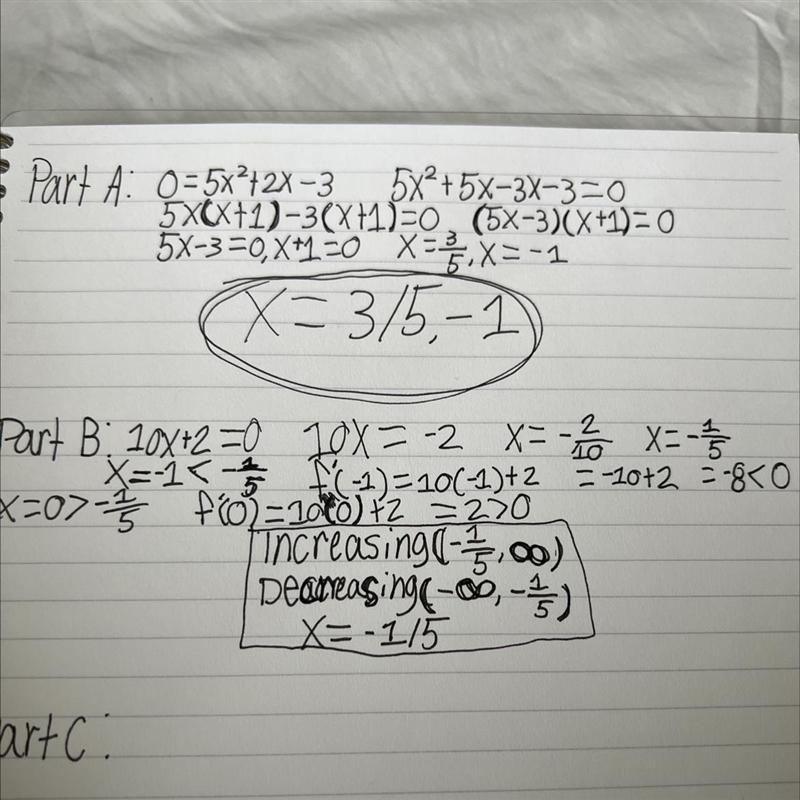 Part A: 0=5x²+2x-3 5x²+5x-3x-3=0
5x(x+1)-3(x+1)=0 (5x-3)(x+1)=0
5x-3=0, x+1=0 x=3/5, x=-1
x=3/5,-1
Part B: 10x+2=0 10x=-2 x=-2/10 x=-1/5
x=-1<-1/5 f'(-1)=10(-1)+2 =-10+2 =-8<0
x=0>-1/5 f'(0)=10(0)+2 =2>0
Increasing(-1/5,∞)
Decreasing(-∞,-1/5)
x=-1/5
art C: